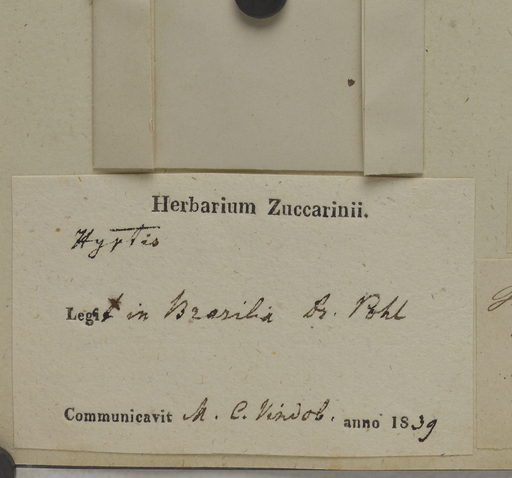 Herbarium Zuccarinii.
Hyptis
Legit in Brasilia Dr. Pohl
Communicavit M. C. Vindob. anno 1839